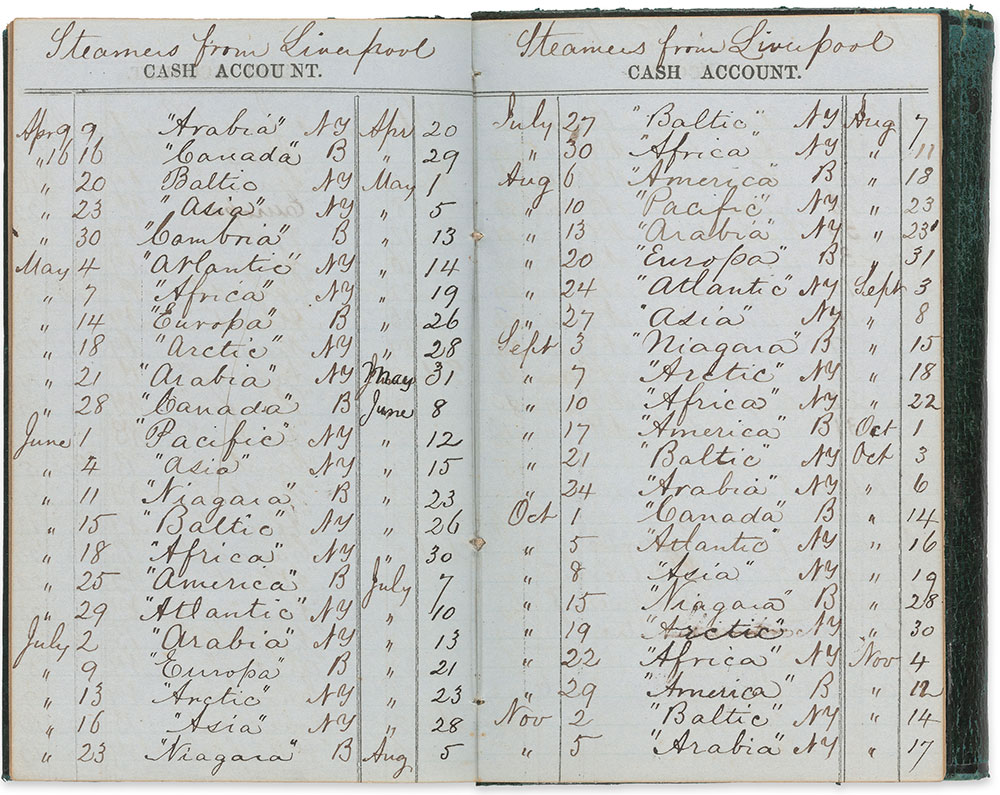 Steamers from Liverpool
CASH ACCOUNT.
Apr 9 9 "Arabia" NY Apr 20
" 16 16 "Canada" B " 29
" 20 Baltic NY May 1
" 23 "Asia" NY " 5
" 30 "Cambria" B " 13
May 4 "Atlantic" NY " 14
" 7 "Africa" NY " 19
" 14 "Europa" B " 26
" 18 "Arctic" NY " 28
" 21 "Arabia" NY May 31
" 28 "Canada" B June 8
June 1 "Pacific" NY " 12
" 4 "Asia" NY " 15
" 11 "Niagara" B " 23
" 15 "Baltic" NY " 26
" 18 "Africa" NY " 30
" 25 "America" B July 7
" 29 "Atlantic" NY " 10
July 2 "Arabia" NY " 13
" 9 "Europa" B " 21
" 13 "Arctic" NY " 23
" 16 "Asia" NY " 28
" 23 "Niagara" B Aug 5
Steamers from Liverpool
CASH ACCOUNT.
July 27 "Baltic" NY Aug 7
" 30 "Africa" NY " 11
Aug 6 "America" B " 18
" 10 "Pacific" NY " 23
" 13 "Arabia" NY " 23
" 20 "Europa" B " 31
" 24 "Atlantic" NY Sept 3
" 27 "Asia" NY " 8
Sept 3 "Niagara" B " 15
" 7 "Arctic" NY " 18
" 10 "Africa" NY " 22
" 17 "America" B Oct 1
" 21 "Baltic" NY Oct 3
" 24 "Arabia" NY " 6
Oct 1 "Canada" B " 14
" 5 "Atlantic" NY " 16
" 8 "Asia" NY " 19
" 15 "Niagara" B " 28
" 19 "Arctic" NY " 30
" 22 "Africa" NY Nov 4
" 29 "America" B " 12
Nov 2 "Baltic" NY " 14
" 5 "Arabia" NY " 17